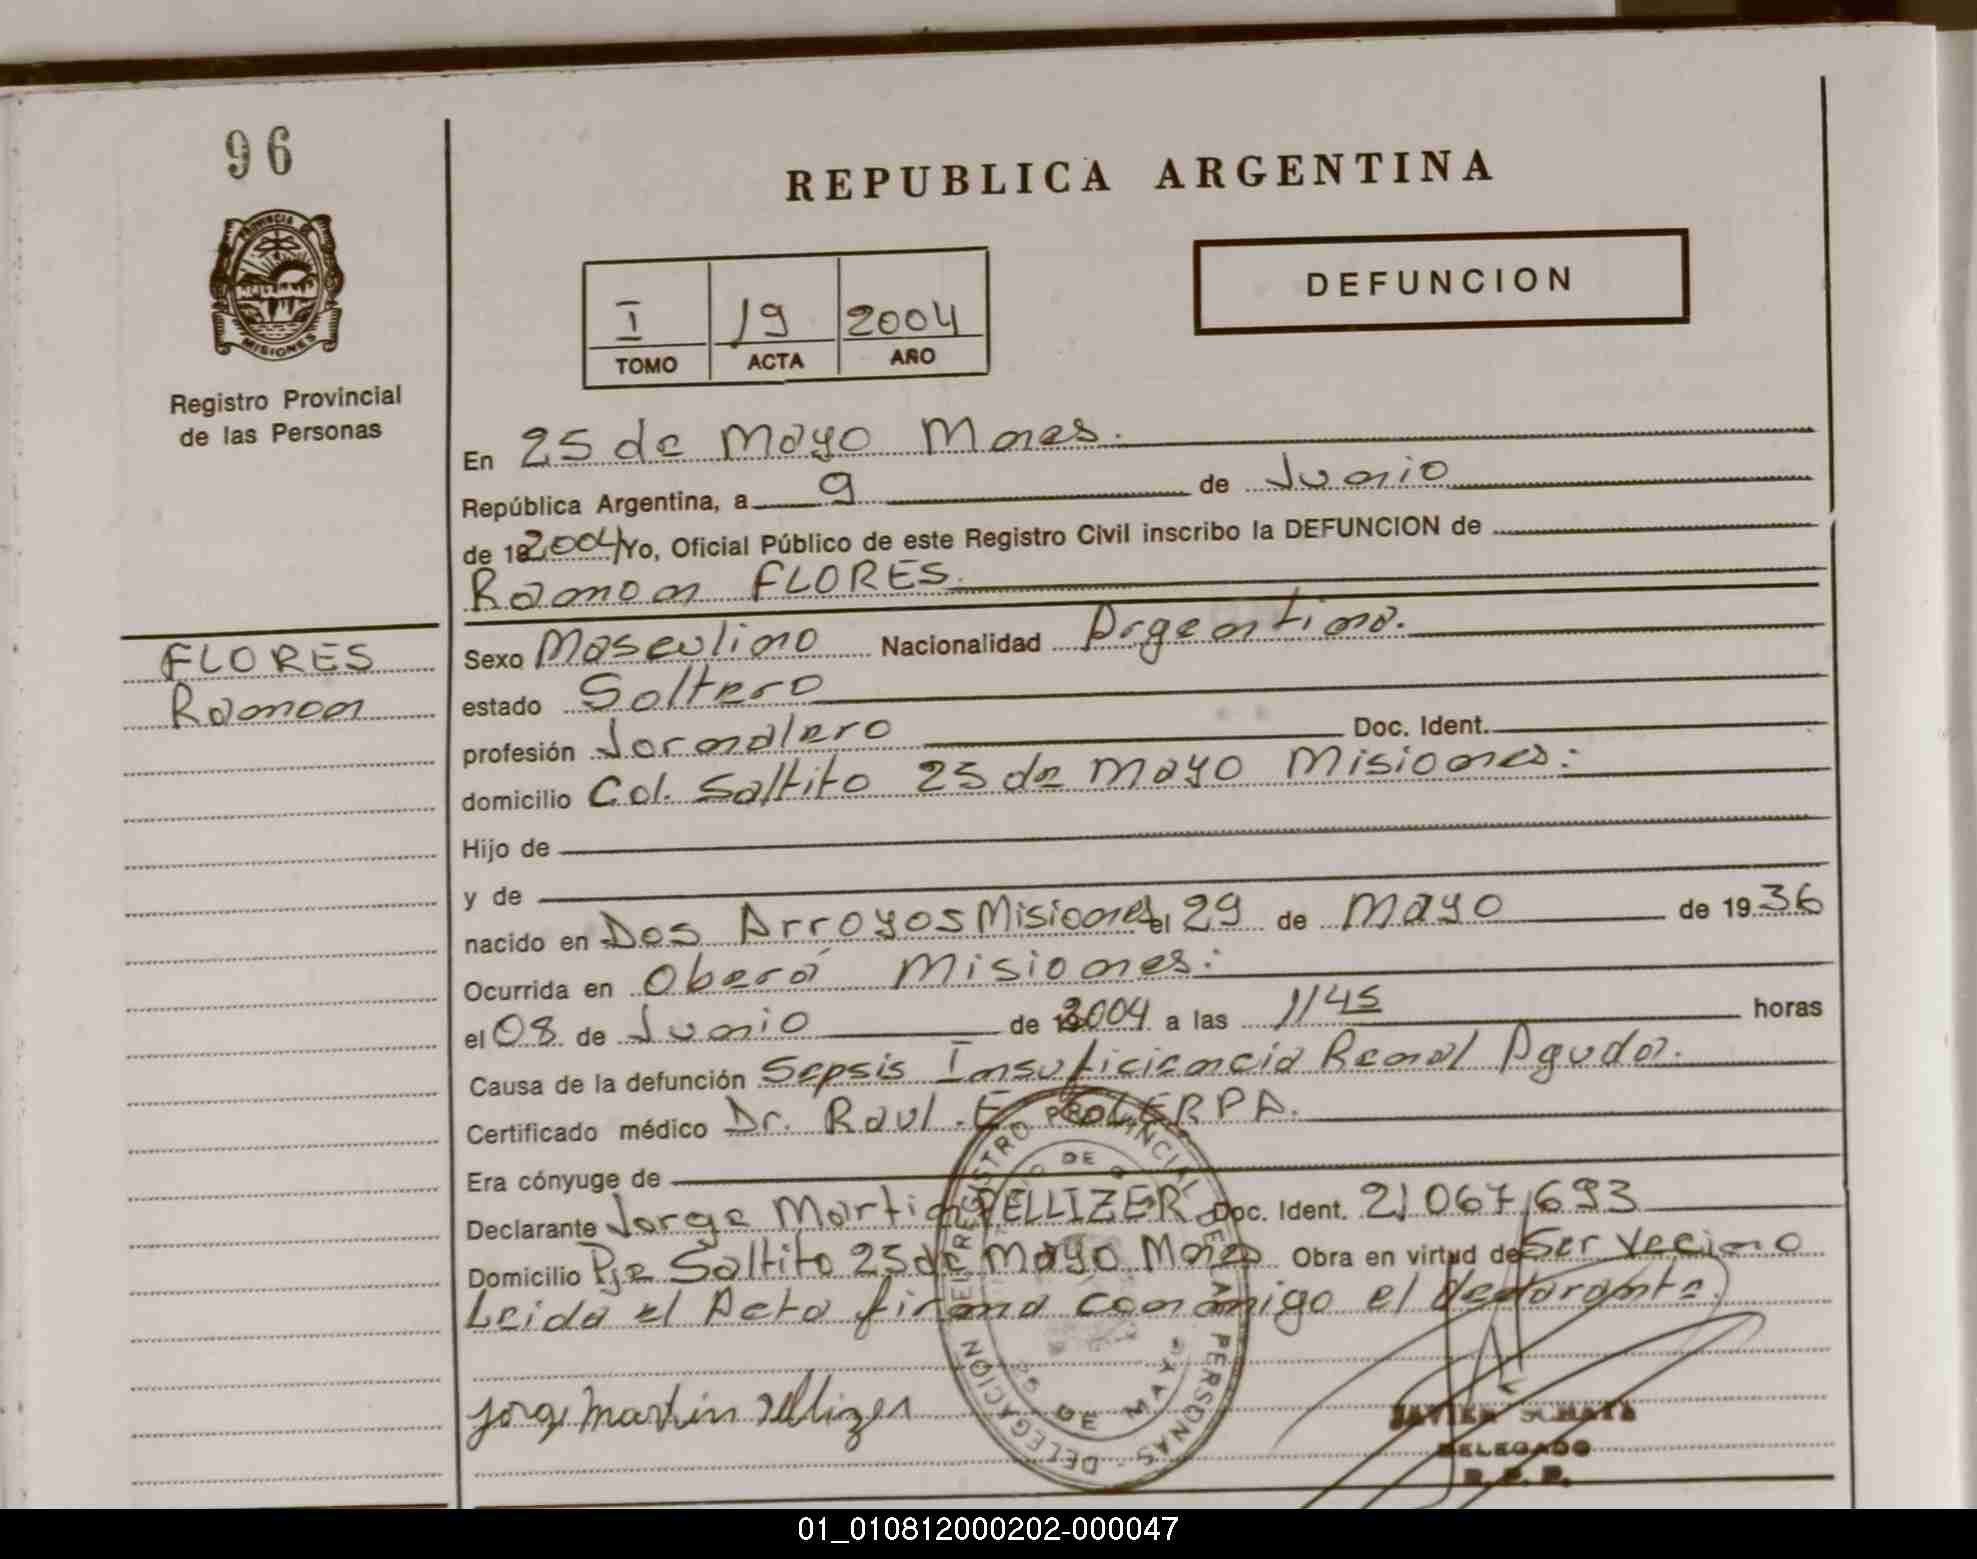 96
REPUBLICA ARGENTINA
PROVINCIA
MISIONES
DEFUNCION
I 19 2004
TOMO ACTA AÑO
Registro Provincial
de las Personas
En 25 de Mayo Mnes.
República Argentina, a 9 de Junio
de 19 2004 Yo, Oficial Público de este Registro Civil inscribo la DEFUNCION de
Ramon FLORES.
FLORES
Ramon
Sexo Masculino Nacionalidad Argentina.
estado Soltero
profesión Jornalero Doc. Ident.
domicilio Col. Saltito 25 de Mayo Misiones:
Hijo de
y de
nacido en Dos Arroyos Misiones el 29 de Mayo de 1936
Ocurrida en Oberá Misiones:
el 08 de Junio de 2004 a las 1145 horas
Causa de la defunción Sepsis Insuficiencia Renal Aguda.
Certificado médico Dr. Raul. E
Era cónyuge de
Declarante Jorge Martin PELLIZER Doc. Ident. 21.067.693
Domicilio Pje Saltito 25 de Mayo Mnes Obra en virtud de Ser Vecino
Leida el Acta firma conmigo el declarante.
Jorge Martin Pellizer
REGISTRO PROVINCIAL DE LAS PERSONAS
DELEGACION
25 DE MAYO
JAVIER
DELEGADO
R.P.P.
01_010812000202-000047